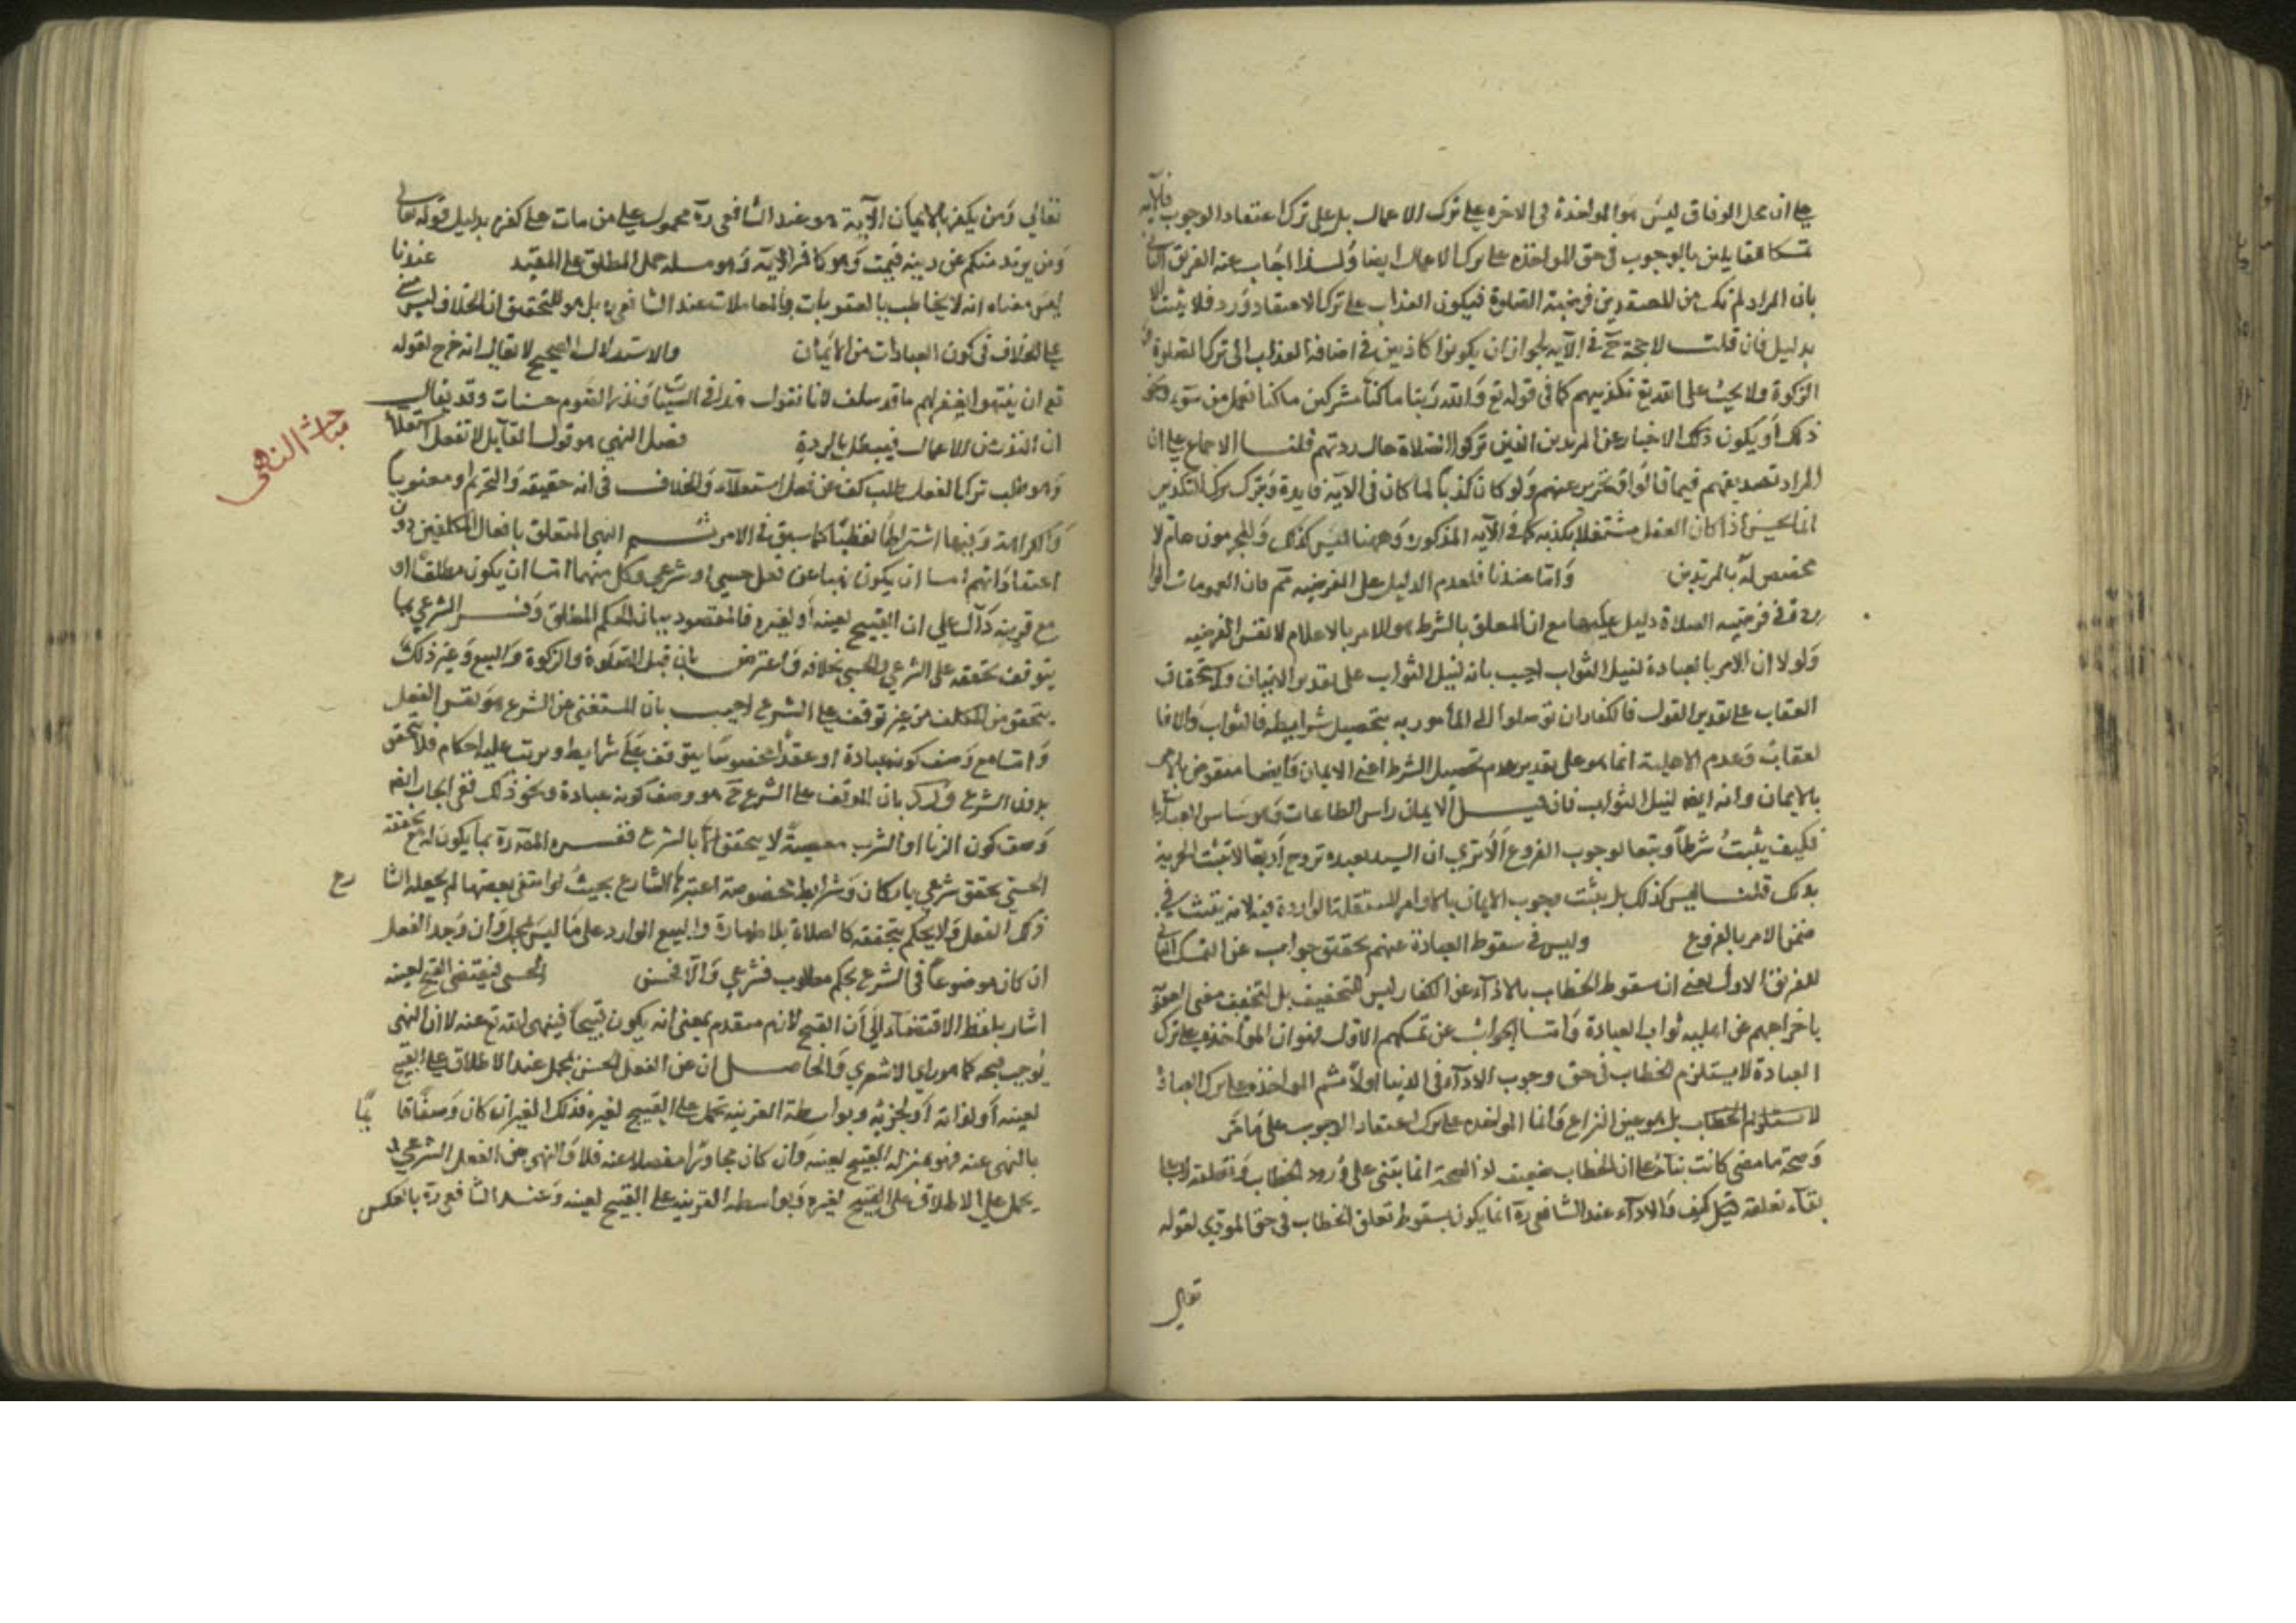 على ان محل الوفاق ليس هو المواخذة فى الاخرة على ترك الاعمال بل على ترك اعتقاد الوجوب فالآية
تمسك القايلين بالوجوب فى حق المواخذه على ترك الاعمال ايضا ولذا اجاب عنه الفريق الثانى
بان المراد لم نك من المعتقدين فرضية الصلوة فيكون العذاب على ترك الاعتقاد ورد فلا يثبت الا
بدليل فان قلت لا حجة فى الآيه لجواز ان يكونوا كاذبين فى اضافة العذاب الى ترك الصلوة و
الزكوة ولا يجب على الله تع تكذيبهم كما فى قوله تع والله ربنا ما كنا مشركين ما كنا نعمل من سوء ونحو
ذلك او يكون ذلك الاخبار عن المرتدين الذين تركوا الصلاة حال ردتهم قلنا الاجماع على ان
المراد تصديقهم فيما قالوا وتحذير غيرهم ولو كان كذبا لما كان فى الآية فايدة وترك التكذيب
انما يحسن اذا كان العقل مستقلا بكذبه كما فى الآيه المذكورة وههنا ليس كذلك والمجرمون عام لا
مخصص له بالمرتدين واما عندنا فلعدم الدليل على الفرضيه
فى فرضيه الصلاة دليل عليها مع ان المعلق بالشرط هو الامر بالاعلام لا نفس الفرضيه
ولولا ان الامر بالعبادة لنيل الثواب اجيب بانه لنيل الثواب على تقدير الاتيان واستحقاق
العقاب على تقدير الترك فالكفار ان توسلوا الى المأمور به بتحصيل شرايطه فالثواب والا فا
لعقاب وعدم الاهلية انما هو على تقدير عدم تحصيل الشرط اعنى الايمان وايضا منقوض بالامر
بالايمان وانه ايضا لنيل الثواب فان قيل الايمان راس الطاعات واساس العبادات
فكيف يثبت شرطا وتبعا لوجوب الفروع الا ترى ان السيد لعبده تزوج اربعا لا تثبت الحرية
بذلك قلنا ليس كذلك بل يثبت وجوب الايمان بالاوامر المستقلة الواردة فيه لا انه يثبت فى
ضمن الامر بالفروع وليس فى سقوط العبادة عنهم تحقيق جواب عن التمسك الثانى
للفريق الاول يعنى ان سقوط الخطاب بالاداء عن الكفار ليس للتخفيف بل لتحقيق معنى العقوبة
باخراجهم عن اهلية ثواب العبادة واما الجواب عن تمسكهم الاول فهو ان المواخذه على ترك
العبادة لا يستلزم الخطاب فى حق وجوب الاداء فى الدنيا اولا ثم المواخذه على ترك العبادة
لا يستلزم الخطاب بل هو عين النزاع وانما المواخذه على ترك اعتقاد الوجوب على ما مر
وصحة ما مضى كانت بناء على ان الخطاب ضعيف لان الصحة انما تبتنى على ورود الخطاب وتعلقه
بقاء تعلقه كيف والاداء عند الشافعى ره انما يكون بسقوط تعلق الخطاب فى حق المودى لقوله
تعالى
تعالى ومن يكفر بالايمان الآية هو عند الشافعى ره محمول على من مات على كفره بدليل قوله تعالى
ومن يرتدد منكم عن دينه فيمت وهو كافر الآيه وهو مسله حمل المطلق على المقيد عندنا
ليس معناه انه لا يخاطب بالعقوبات والمعاملات عند الشافعى ره بل هو للتحقيق ان الخلاف ليس مبنى
على الخلاف فى كون العبادات من الايمان والاستدلال الصحيح لا يقال انه خرج لقوله
تع ان ينتهوا يغفر لهم ما قد سلف لانا نقول هذا فى السيئات ونذر الصوم حسنات وقد يقال
ان النذر من الاعمال فيبطل بالردة فصل النهى هو قول القايل لا تفعل استعلاء
وهو طلب ترك الفعل طلب كف عن فعل استعلاء والخلاف فى انه حقيقه والتحريم او معنويا
والكراهة وبينهما اشتراطا لفظيا كما سبق فى الامر ثم النهى المتعلق بافعال المكلفين دون
اعتقاداتهم اما ان يكون نهيا عن فعل حسى او شرعى وكل منهما اما ان يكون مطلقا او
مع قرينه دالة على ان القبيح لعينه او لغيره فالمقصود بيان الحكم المطلق وفسر الشرعى بما
يتوقف تحققه على الشرع والحسى بخلافه واعترض بان قبل الصلوة والزكوة والبيع وغير ذلك
يتحقق من المكلف من غير توقف على الشرع اجيب بان المستغنى عن الشرع هو نفس الفعل
واما مع وصف كونه عبادة او عقدا مخصوصا يتوقف على شرايط ويترتب عليه احكام فلا يتحقق
بدون الشرع ورد بان المتوقف على الشرع ح هو وصف كونه عبادة ونحو ذلك ففى
وصف كون الزنا او الشرب معصية لا يتحقق الا بالشرع ففسره بما يكون له مع تحققه
الحسى تحقق شرعى باركان وشرايط مخصوصة اعتبرها الشارع بحيث لو انتفى بعضها لم يجعله الشا رع
ذلك الفعل ولا يحكم بتحققه كالصلاة بلا طهارة والبيع الوارد على ما ليس بمحل وان وجد الفعل
ان كان موضوعا فى الشرع بحكم مطلوب فشرعى والا فحسى الحسى فيقتضى القبح لعينه
اشار بلفظ الاقتضاء الى ان القبح لازم متقدم بمعنى انه يكون قبيحا فينهى الله تع عنه لا ان النهى
يوجب قبحه كما هو راى الاشعرى والحاصل ان عن الفعل الحسى يحمل عند الاطلاق على القبيح
لعينه او لذاته او لجزئه وبواسطة القرينه تحمل على القبيح لغيره فذلك الغير ان كان وصفا قا يما
بالنهى عنه فهو بمنزله القبيح لعينه وان كان مجاورا منفصلا عنه فلا والنهى عن الفعل الشرعى
يحمل على الاطلاق على القبيح لغيره وبواسطه القرينه على القبيح لعينه وعند الشافعى ره بالعكس
مباحث النهى